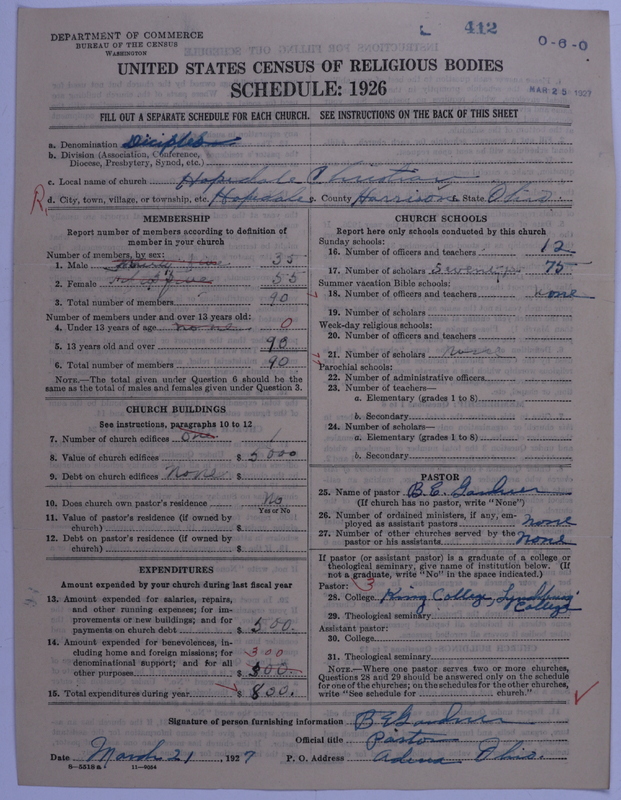 412
0-6-0
DEPARTMENT OF COMMERCE
BUREAU OF THE CENSUS
WASHINGTON
MAR 25 1927
UNITED STATES CENSUS OF RELIGIOUS BODIES
SCHEDULE: 1926
FILL OUT A SEPARATE SCHEDULE FOR EACH CHURCH. SEE INSTRUCTIONS ON THE BACK OF THIS SHEET
a. Denomination Diciples
b. Division (Association, Conference,
Diocese, Presbytery, Synod, etc.)
c. Local name of church Hopedale Christian
R d. City, town, village, or township, etc. Hopdale e. County Harrison f. State Ohio
MEMBERSHIP
Report number of members according to definition of
member in your church
Number of members, by sex:
1. Male 35
2. Female 55
3. Total number of members 90
Number of members under and over 13 years old:
4. Under 13 years of age none 0
5. 13 years old and over 90
6. Total number of members 90
NOTE.—The total given under Question 6 should be the
same as the total of males and females given under Question 3.
CHURCH BUILDINGS
See instructions, paragraphs 10 to 12
7. Number of church edifices One 1
8. Value of church edifices $ 5000
9. Debt on church edifices None $
10. Does church own pastor's residence No
Yes or No
11. Value of pastor's residence (if owned by
church) $
12. Debt on pastor's residence (if owned by
church) $
EXPENDITURES
Amount expended by your church during last fiscal year
13. Amount expended for salaries, repairs,
and other running expenses; for im-
provements or new buildings; and for
payments on church debt $ 500.
14. Amount expended for benevolences, in-
cluding home and foreign missions; for 300
denominational support; and for all
other purposes $ 300.
15. Total expenditures during year $ 800.
CHURCH SCHOOLS
Report here only schools conducted by this church
Sunday schools:
16. Number of officers and teachers 12
17. Number of scholars 75
Summer vacation Bible schools:
18. Number of officers and teachers none
19. Number of scholars
Week-day religious schools:
20. Number of officers and teachers
21. Number of scholars none
Parochial schools:
22. Number of administrative officers
23. Number of teachers—
a. Elementary (grades 1 to 8)
b. Secondary
24. Number of scholars—
a. Elementary (grades 1 to 8)
b. Secondary
PASTOR
25. Name of pastor B.E. Gardner
(If church has no pastor, write "None")
26. Number of ordained ministers, if any, em-
ployed as assistant pastors none
27. Number of other churches served by the
pastor or his assistants None
If pastor (or assistant pastor) is a graduate of a college or
theological seminary, give name of institution below. (If
not a graduate, write "No" in the space indicated.)
Pastor: 3
28. College King College, Lynchburg
College
29. Theological seminary
Assistant pastor:
30. College
31. Theological seminary
NOTE.—Where one pastor serves two or more churches,
Questions 28 and 29 should be answered only on the schedule
for one of the churches; on the schedules for the other churches,
write "See schedule for church."
Signature of person furnishing information B E Gardner
Official title Pastor
Date March 21, 1927 P. O. Address Adena Ohio.
8-5518 a 11-9054